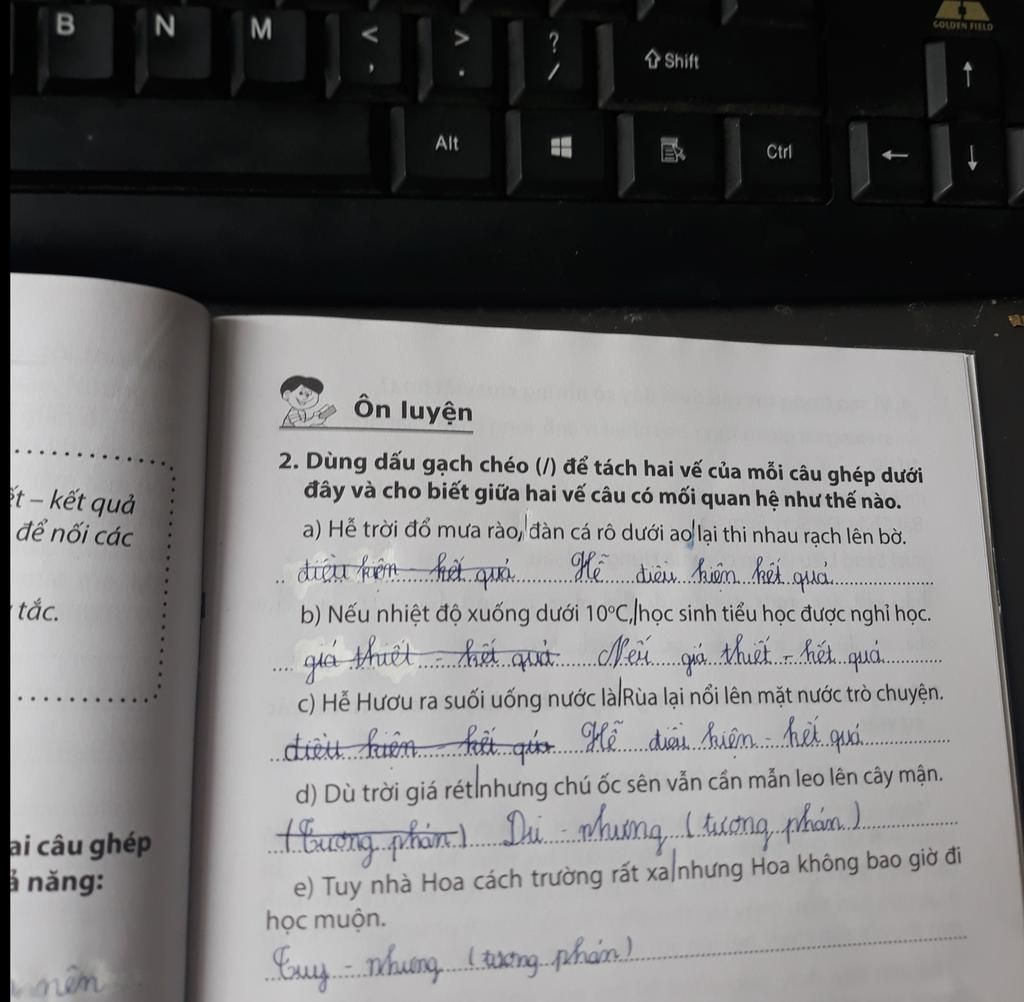 B N M < , > . ? / Shift
GOLDEN FIELD
Alt Ctrl
ết – kết quả
để nối các
tắc.
ai câu ghép
ả năng:
nên
Ôn luyện
2. Dùng dấu gạch chéo (/) để tách hai vế của mỗi câu ghép dưới
đây và cho biết giữa hai vế câu có mối quan hệ như thế nào.
a) Hễ trời đổ mưa rào,/đàn cá rô dưới ao lại thi nhau rạch lên bờ.
điều kiện - kết quả Hễ điều kiện kết quả
b) Nếu nhiệt độ xuống dưới 10°C,/học sinh tiểu học được nghỉ học.
giả thiết - kết quả Nếu giả thiết - kết quả
c) Hễ Hươu ra suối uống nước là/Rùa lại nổi lên mặt nước trò chuyện.
điều kiện - kết quả Hễ điều kiện - kết quả
d) Dù trời giá rét/nhưng chú ốc sên vẫn cần mẫn leo lên cây mận.
(tương phản) Dù - nhưng (tương phản)
e) Tuy nhà Hoa cách trường rất xa/nhưng Hoa không bao giờ đi
học muộn.
Tuy - nhưng (tương phản)